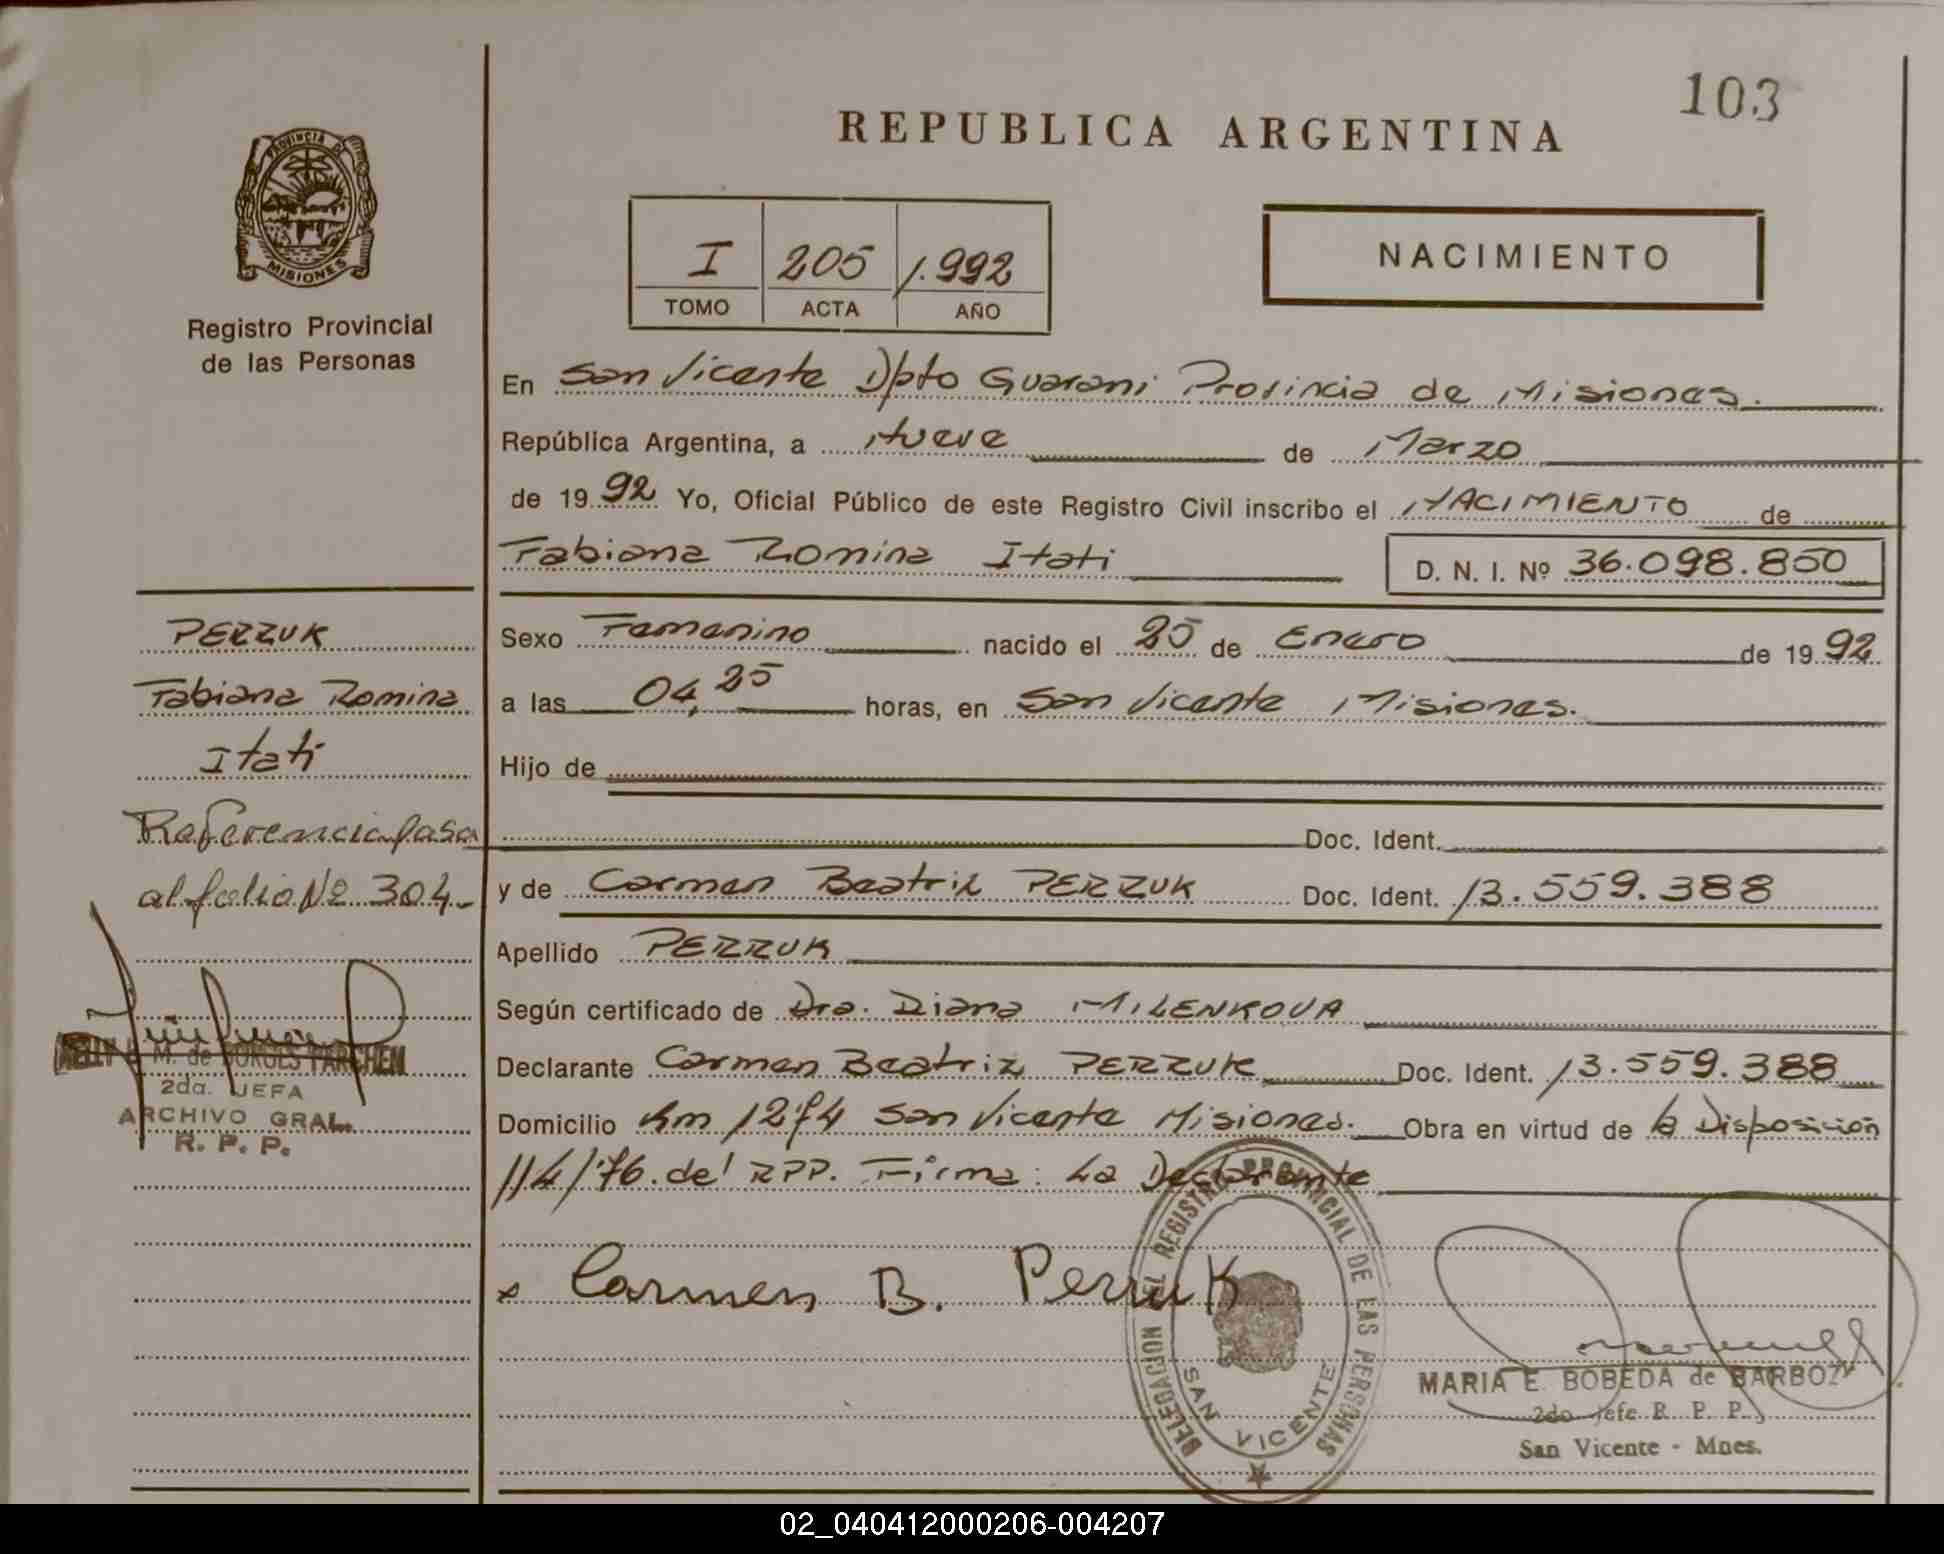 103
REPUBLICA ARGENTINA
PROVINCIA D
MISIONES
Registro Provincial
de las Personas
I 205 1.992
TOMO ACTA AÑO
NACIMIENTO
En San Vicente Dpto Guarani Provincia de Misiones.
República Argentina, a Nueve de Marzo
de 1992 Yo, Oficial Público de este Registro Civil inscribo el NACIMIENTO de
Fabiana Romina Itati D. N. I. Nº 36.098.850
PERRUK
Fabiana Romina
Itati
Referencia pasa
al folio Nº 304.-
M. de BORGES TARCHEM
2da. JEFA
ARCHIVO GRAL.
R. P. P.
Sexo Femenino nacido el 25 de Enero de 1992
a las 04,25 horas, en San Vicente Misiones.
Hijo de
Doc. Ident.
y de Carmen Beatriz PERRUK Doc. Ident. 13.559.388
Apellido PERRUK
Según certificado de Dra. Diana MILENKOVA
Declarante Carmen Beatriz PERRUK Doc. Ident. 13.559.388
Domicilio Km 1274 San Vicente Misiones. Obra en virtud de la Disposición
114/76. del RPP. Firma: La Declarante
x Carmen B. Perruk
DELEGACION DEL REGISTRO PROVINCIAL DE LAS PERSONAS
SAN VICENTE
MARIA E. BOBEDA de BARBOZA
2do Jefe R. P. P.
San Vicente - Mnes.
02_040412000206-004207